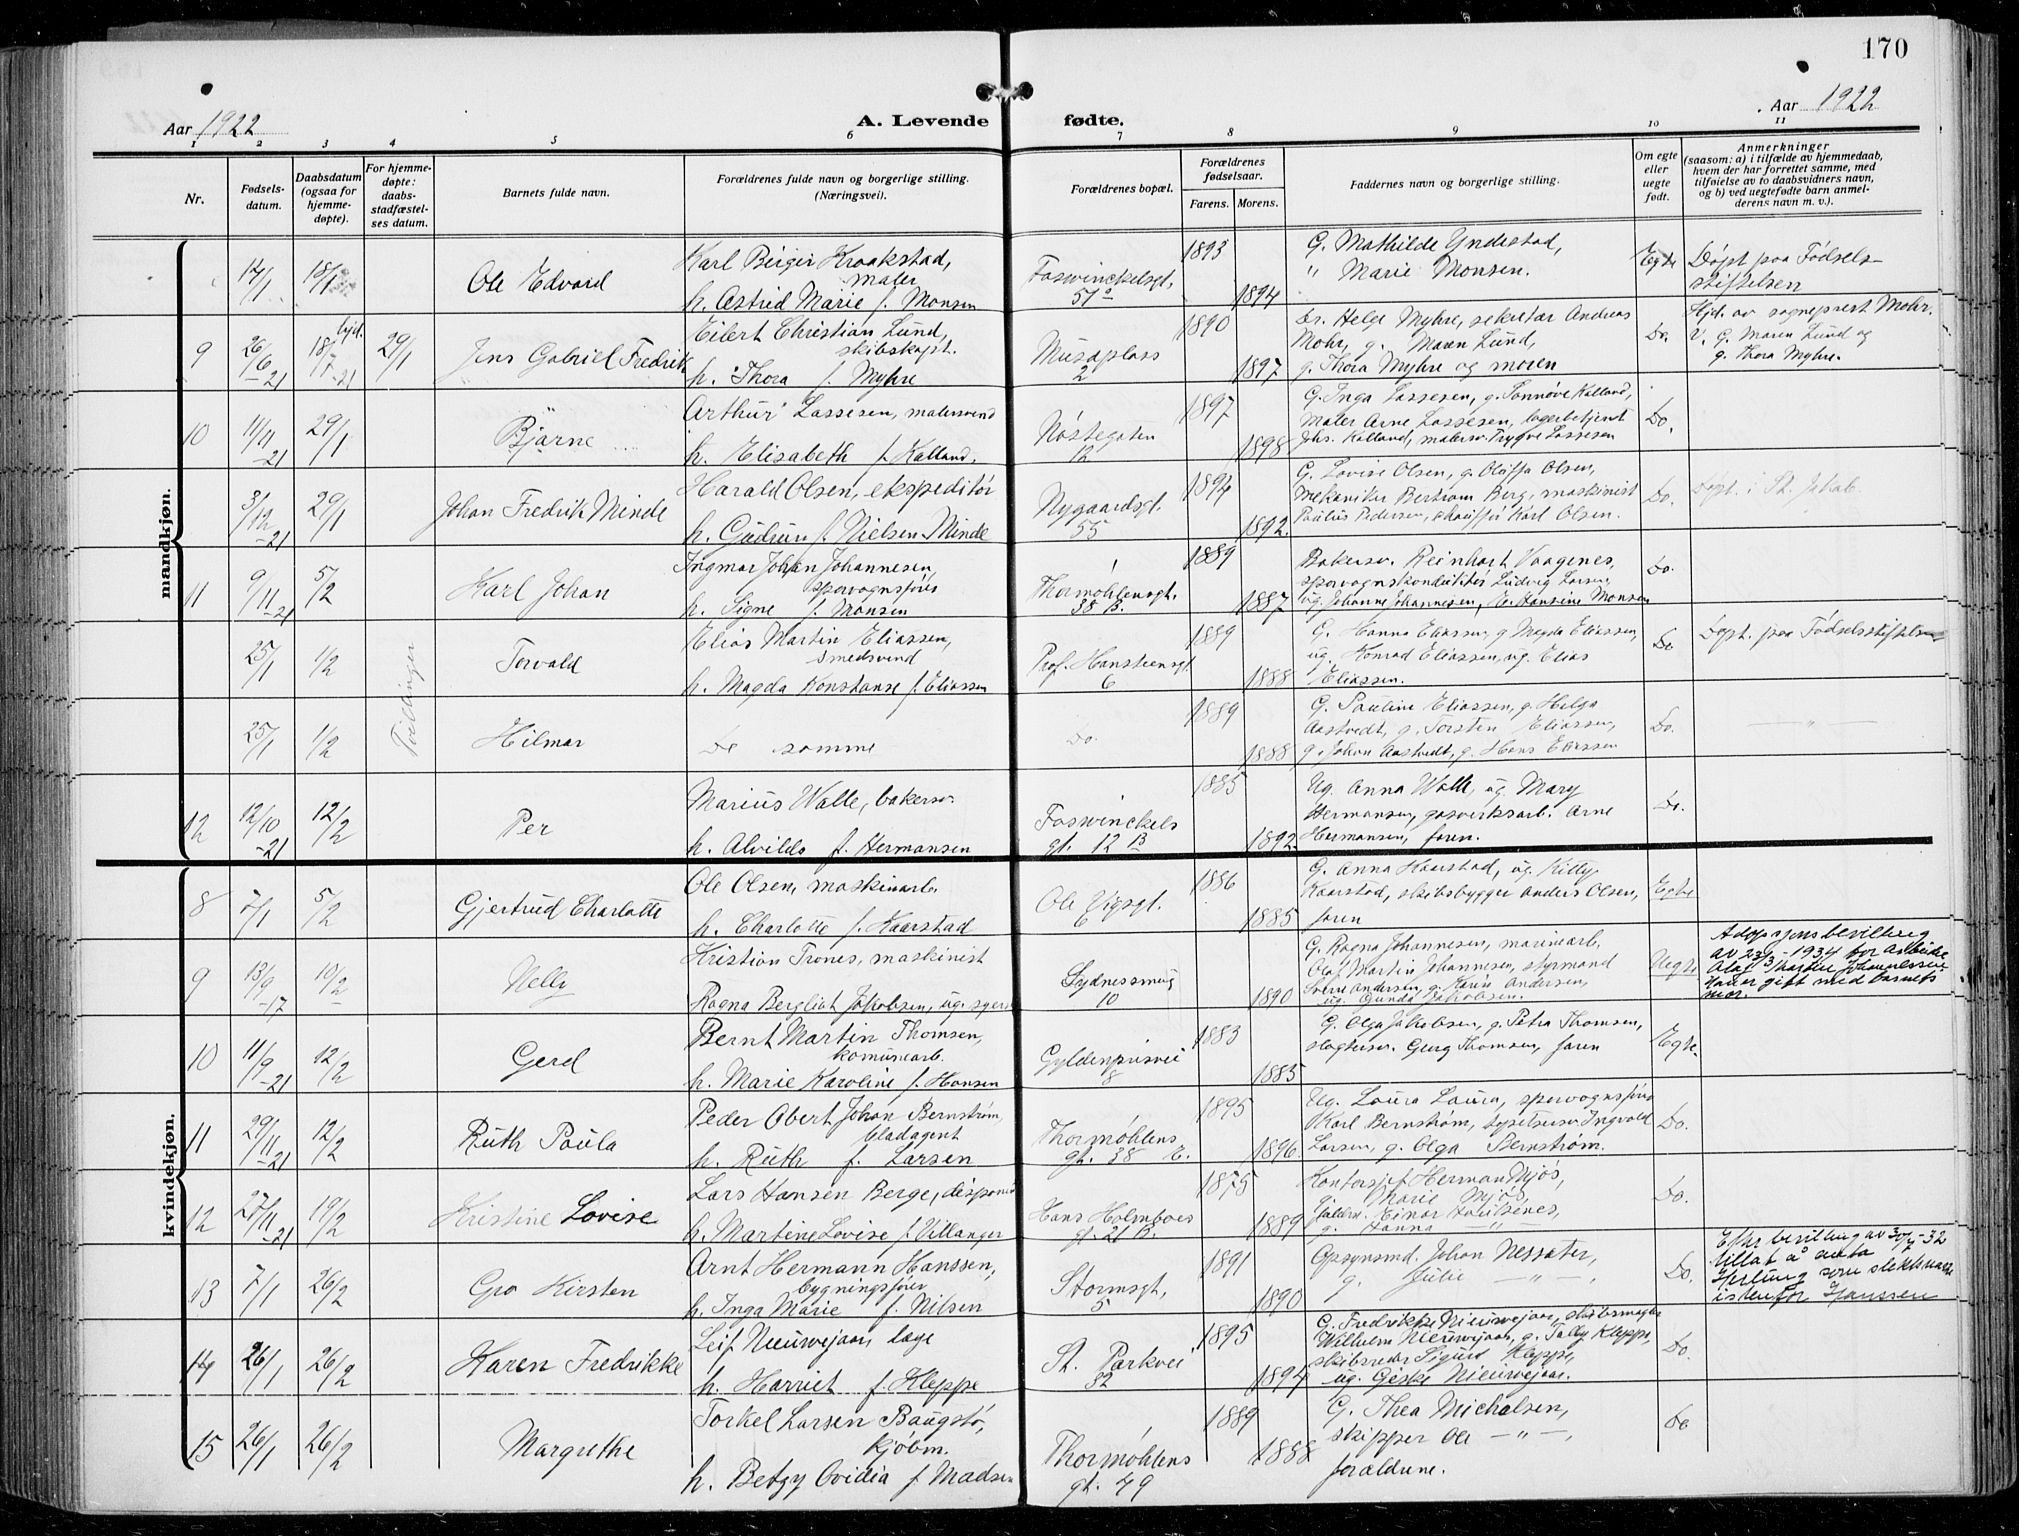 170
Aar 1922
A. Levende
fødte.
Aar 1922
1 2 3 4 5 6 7 8 9 10 11
Nr.
Fødsels-
datum.
Daabsdatum
(ogsaa for
hjemme-
døpte).
For hjemme-
døpte:
daabs-
stadfæstel-
ses datum.
Barnets fulde navn.
Forældrenes fulde navn og borgerlige stilling.
(Næringsvei).
Forældrenes bopæl.
Forældrenes
fødselsaar.
Farens. Morens.
Faddernes navn og borgerlige stilling.
Om egte
eller
uegte
født.
Anmerkninger
(saasom: a) i tilfælde av hjemmedaab,
hvem der har forrettet samme, med
tilføielse av to daabsvidners navn,
og b) ved uegtefødte barn anmel-
derens navn m. v.).
mandkjøn.
14/1 18/1 Ole Edvard
Karl Birger Kraakstad,
maler
h. Astrid Marie f. Monsen
Foswinckelsgt.
51a
1893 1894
G. Mathilde Yndestad,
" Marie Monsen.
Egte
Døpt paa Fødsels-
stiftelsen
9 26/6 -21 18/7 -21 hjd. 29/1
Jens Gabriel Fredrik
Eilert Christian Lund,
skibskapt.
h. Thora f. Myhre
Museplass
2
1890 1897
Dr. Helge Myhre, sekretær Andreas
Mohr, g. Maren Lund,
g. Thora Myhre og moren
Do.
Hjd. av sogneprest Mohr.
V. G. Maren Lund og
g. Thora Myhre.
10 11/11 -21 29/1
Bjarne
Arthur Lassesen, malersvend
h. Elisabeth f. Kalland.
Nøstegaten
12
1897 1898
G. Inga Lassesen, g. Sønnøve Kalland,
Maler Arne Lassesen, lagerbetjent
Jhs. Kalland, malersv. Trygve Lassesen
Do.
3/12 -21 29/1
Johan Fredrik Minde
Harald Olsen, ekspeditør
h. Gudrun f. Nielsen Minde
Nygaardsgt.
55
1894 1892.
G. Lovise Olsen, g. Oluffa Olsen,
Mekaniker Bertram Berg, maskinist
Paulus Pedersen, chauffør Karl Olsen.
Do.
Døpt. i St. Jakob.
11 9/11 -21 5/2
Karl Johan
Ingmar Johan Johannesen,
sporvognsfører
h. Signe f. Monsen
Thormøhlensgt.
38 B.
1889 1887
Bakersv. Reinhart Vaagenes,
sporvognskonduktør Ludvig Larsen,
ug. Johanne Johannesen, Hansine Monsen
Do.
25/1 1/2
Tvillinger
Torvald
Elias Martin Eliassen,
smedsvend
h. Magda Konstanse f. Eliassen
Prof. Hansteensgt.
6
1889 1888
G. Hanna Eliassen, g. Magda Eliassen,
ug. Konrad Eliassen, ug. Elias
Eliassen.
Do
Døpt. paa Fødselsstiftelsen
25/1 1/2
Hilmar
De samme
Do.
1889 1888
G. Pauline Eliassen, g. Helga
Aastvedt, g. Torsten Eliassen,
g. Johan Aastvedt, g. Hans Eliassen
Do.
— " —
12 12/10 -21 12/2
Per
Marius Walle, bakersv.
h. Alvilda f. Hermansen
Foswinckels
gt. 12 B
1885 1892.
Ug. Anna Walle, ug. Mary
Hermansen, gasverksarb. Arne
Hermansen, faren.
Do.
kvindekjøn.
8 7/1 5/2
Gjertrud Charlotte
Ole Olsen, maskinarb.
h. Charlotte f. Kaarstad
Ole Vigsgt.
6
1886 1885
G. Anna Kaarstad, ug. Kitty
Kaarstad, skibsbygger Anders Olsen,
faren
Egte
9 13/9 -17 10/2
Nelly
Kristian Trones, maskinist
Ragna Bergliot Jakobsen, ug. syerske
Sydnessmug
10
1890
G. Ragna Johannesen, marinearb.
Olaf Martin Johannesen, styrmand
Sverre Andersen, g. Karen Andersen,
ug. Gunda Jakobsen.
Uegte
Adopsjonsbevilling
av 23/3-1934 for arbeider
Olaf Martin Johannessen
som er gift med barnets
mor.
10 11/9 -21 12/2
Gerd
Bernt Martin Thomsen,
komunearb.
h. Marie Karoline f. Hansen
Gyldenprisvei
8
1883 1885
G. Olga Jakobsen, g. Petra Thomsen,
slagtersv. Georg Thomsen, faren
Egte.
11 29/11 -21 12/2
Ruth Paula
Peder Obert Johan Bernstrøm,
bladagent
h. Ruth f. Larsen
Thormøhlens
gt. 38 E.
1895 1896
Ug. Laura Laura, sporvognsfører
Karl Bernstrøm, typetsv. Ingvald
Larsen, g. Olga Bernstrøm.
Do.
12 27/11 -21 19/2
Kristine Lovise
Lars Hansen Berge, disponent
h. Martine Lovise f. Villanger
Hans Holmboes
gt. 21 B.
1875 1889
Kontorsjef Herman Mjøs,
Marie Mjøs,
Einar
g. Hanna — " —
Do.
13 7/1 26/2
Gro Kirsten
Arnt Hermann Hanssen,
bygningsfører
h. Inga Marie f. Nilsen
Stormsgt.
5
1891 1890
Opsynsmd. Johan Nessæter,
g. Julie — " — ,
Do.
Efter bevilling av 30/7-32
tillat å anta
Hertung som slektsnavn
istenfor Hanssen
14 26/1 26/2
Karen Fredrikke
Leif Nieuwejaar, læge
h. Harriet f. Kleppe
St. Parkvei
32
1895 1894
G. Fredrikke Nieuwejaar, skibsmegler
Wilhelm Nieuwejaar, g. Tally Kleppe,
skibsreder Sigurd Kleppe,
ug. Geske Nieuwejaar.
Do.
15 26/1 26/2
Margrethe
Torkel Larsen Baugstø,
kjøbm.
h. Betzy Ovidia f. Madsen
Thormøhlens
gt. 49
1889 1888
G. Thea Michalsen,
skipper Ole — " — ,
forældrene.
Do